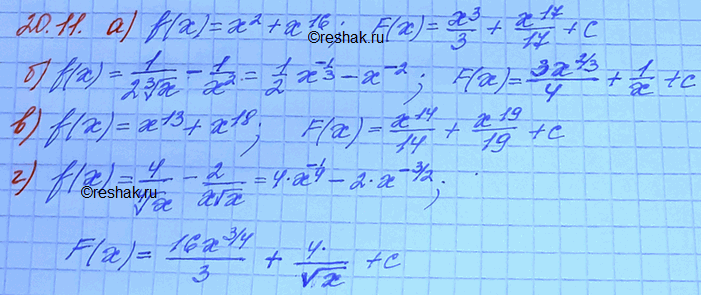 20.11. а) f(x) = x² + x¹⁶; F(x) = x³/3 + x¹⁷/17 + C
reshak.ru
б) f(x) = 1/(2∛x) − 1/x² = 1/2 x^(−1/3) − x⁻²; F(x) = 3x^(2/3)/4 + 1/x + C
в) f(x) = x¹³ + x¹⁸; F(x) = x¹⁴/14 + x¹⁹/19 + C
г) f(x) = 4/√x − 2/(x√x) = 4·x^(−1/4) − 2·x^(−3/2);
reshak.ru
F(x) = 16x^(3/4)/3 + 4·/√x + C